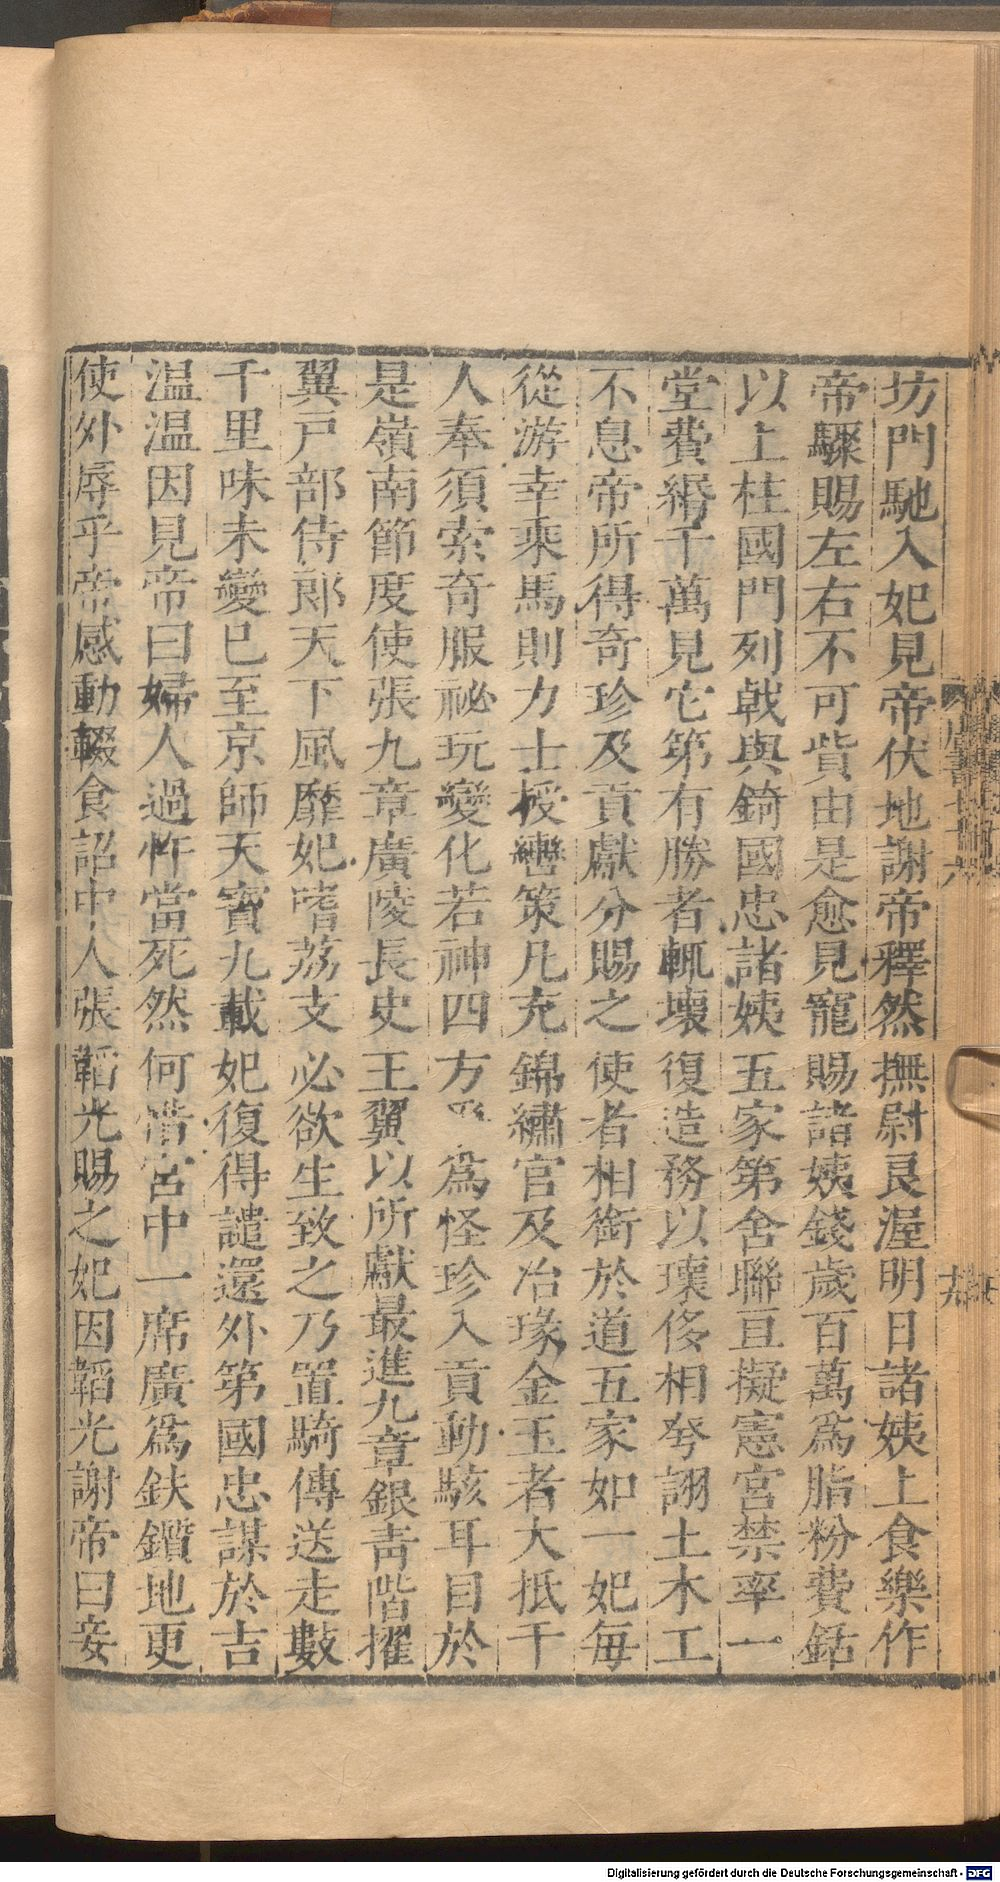 坊門馳入妃見帝伏地謝帝釋然撫尉良渥明日諸姨上食樂作
帝驟賜左右不可貲由是愈見寵賜諸姨錢歲百萬爲脂粉費銛
以上柱國門列戟與錡國忠諸姨五家第舍聯亘擬憲宮禁率一
堂費緡千萬見它第有勝者輒壞復造務以瓌侈相夸詡土木工
不息帝所得奇珍及貢獻分賜之使者相銜於道五家如一妃每
從游幸乘馬則力士授轡策凡充錦繡官及冶瑑金玉者大抵千
人奉須索奇服祕玩變化若神四方爲怪珍入貢動駭耳目於
是嶺南節度使張九章廣陵長史王翼以所獻最進九章銀青階擢
翼戶部侍郎天下風靡妃嗜荔支必欲生致之乃置騎傳送走數
千里味未變已至京師天寶九載妃復得譴還外第國忠謀於吉
温温因見帝曰婦人過忤當死然何惜宮中一席廣爲鈇鑕地更
使外辱乎帝感動輟食詔中人張韜光賜之妃因韜光謝帝曰妾
唐書七十六
十九
Digitalisierung gefördert durch die Deutsche Forschungsgemeinschaft - DFG